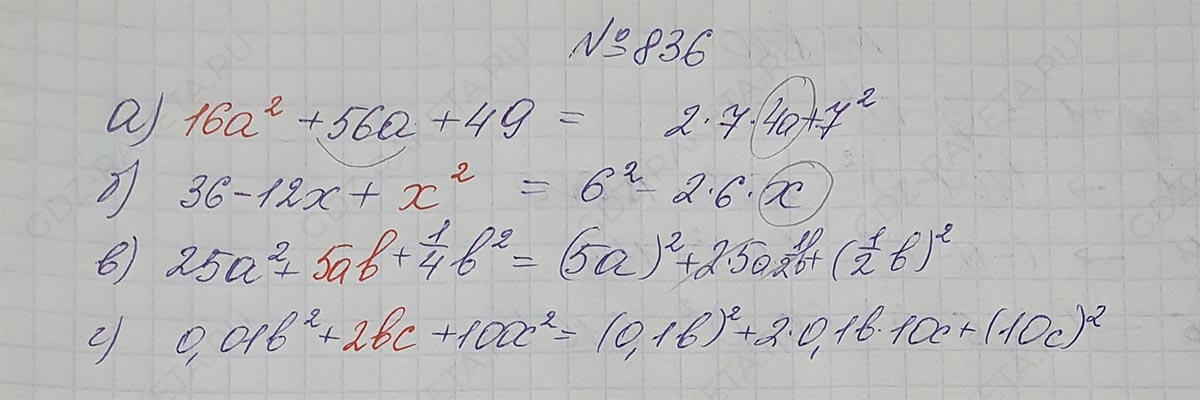 №836
а) 16а² + 56а + 49 = 2·7·4а+7²
б) 36-12х + х² = 6² - 2·6·х
в) 25а² + 5ab + 1/4 b² = (5а)² + 2·5а 1/2b + (1/2 b)²
г) 0,01b² + 2bc + 100c² = (0,1b)² + 2·0,1b·10c + (10c)²
GDZ-RAKETA.RU